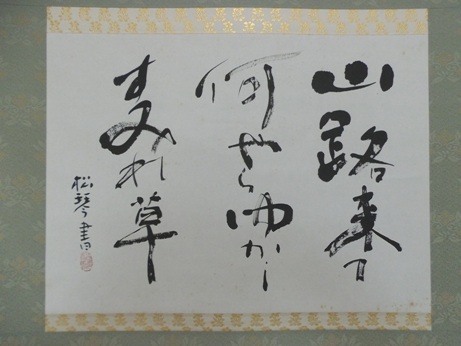 山路来て
何やらゆかし
すみれ草
松琴書